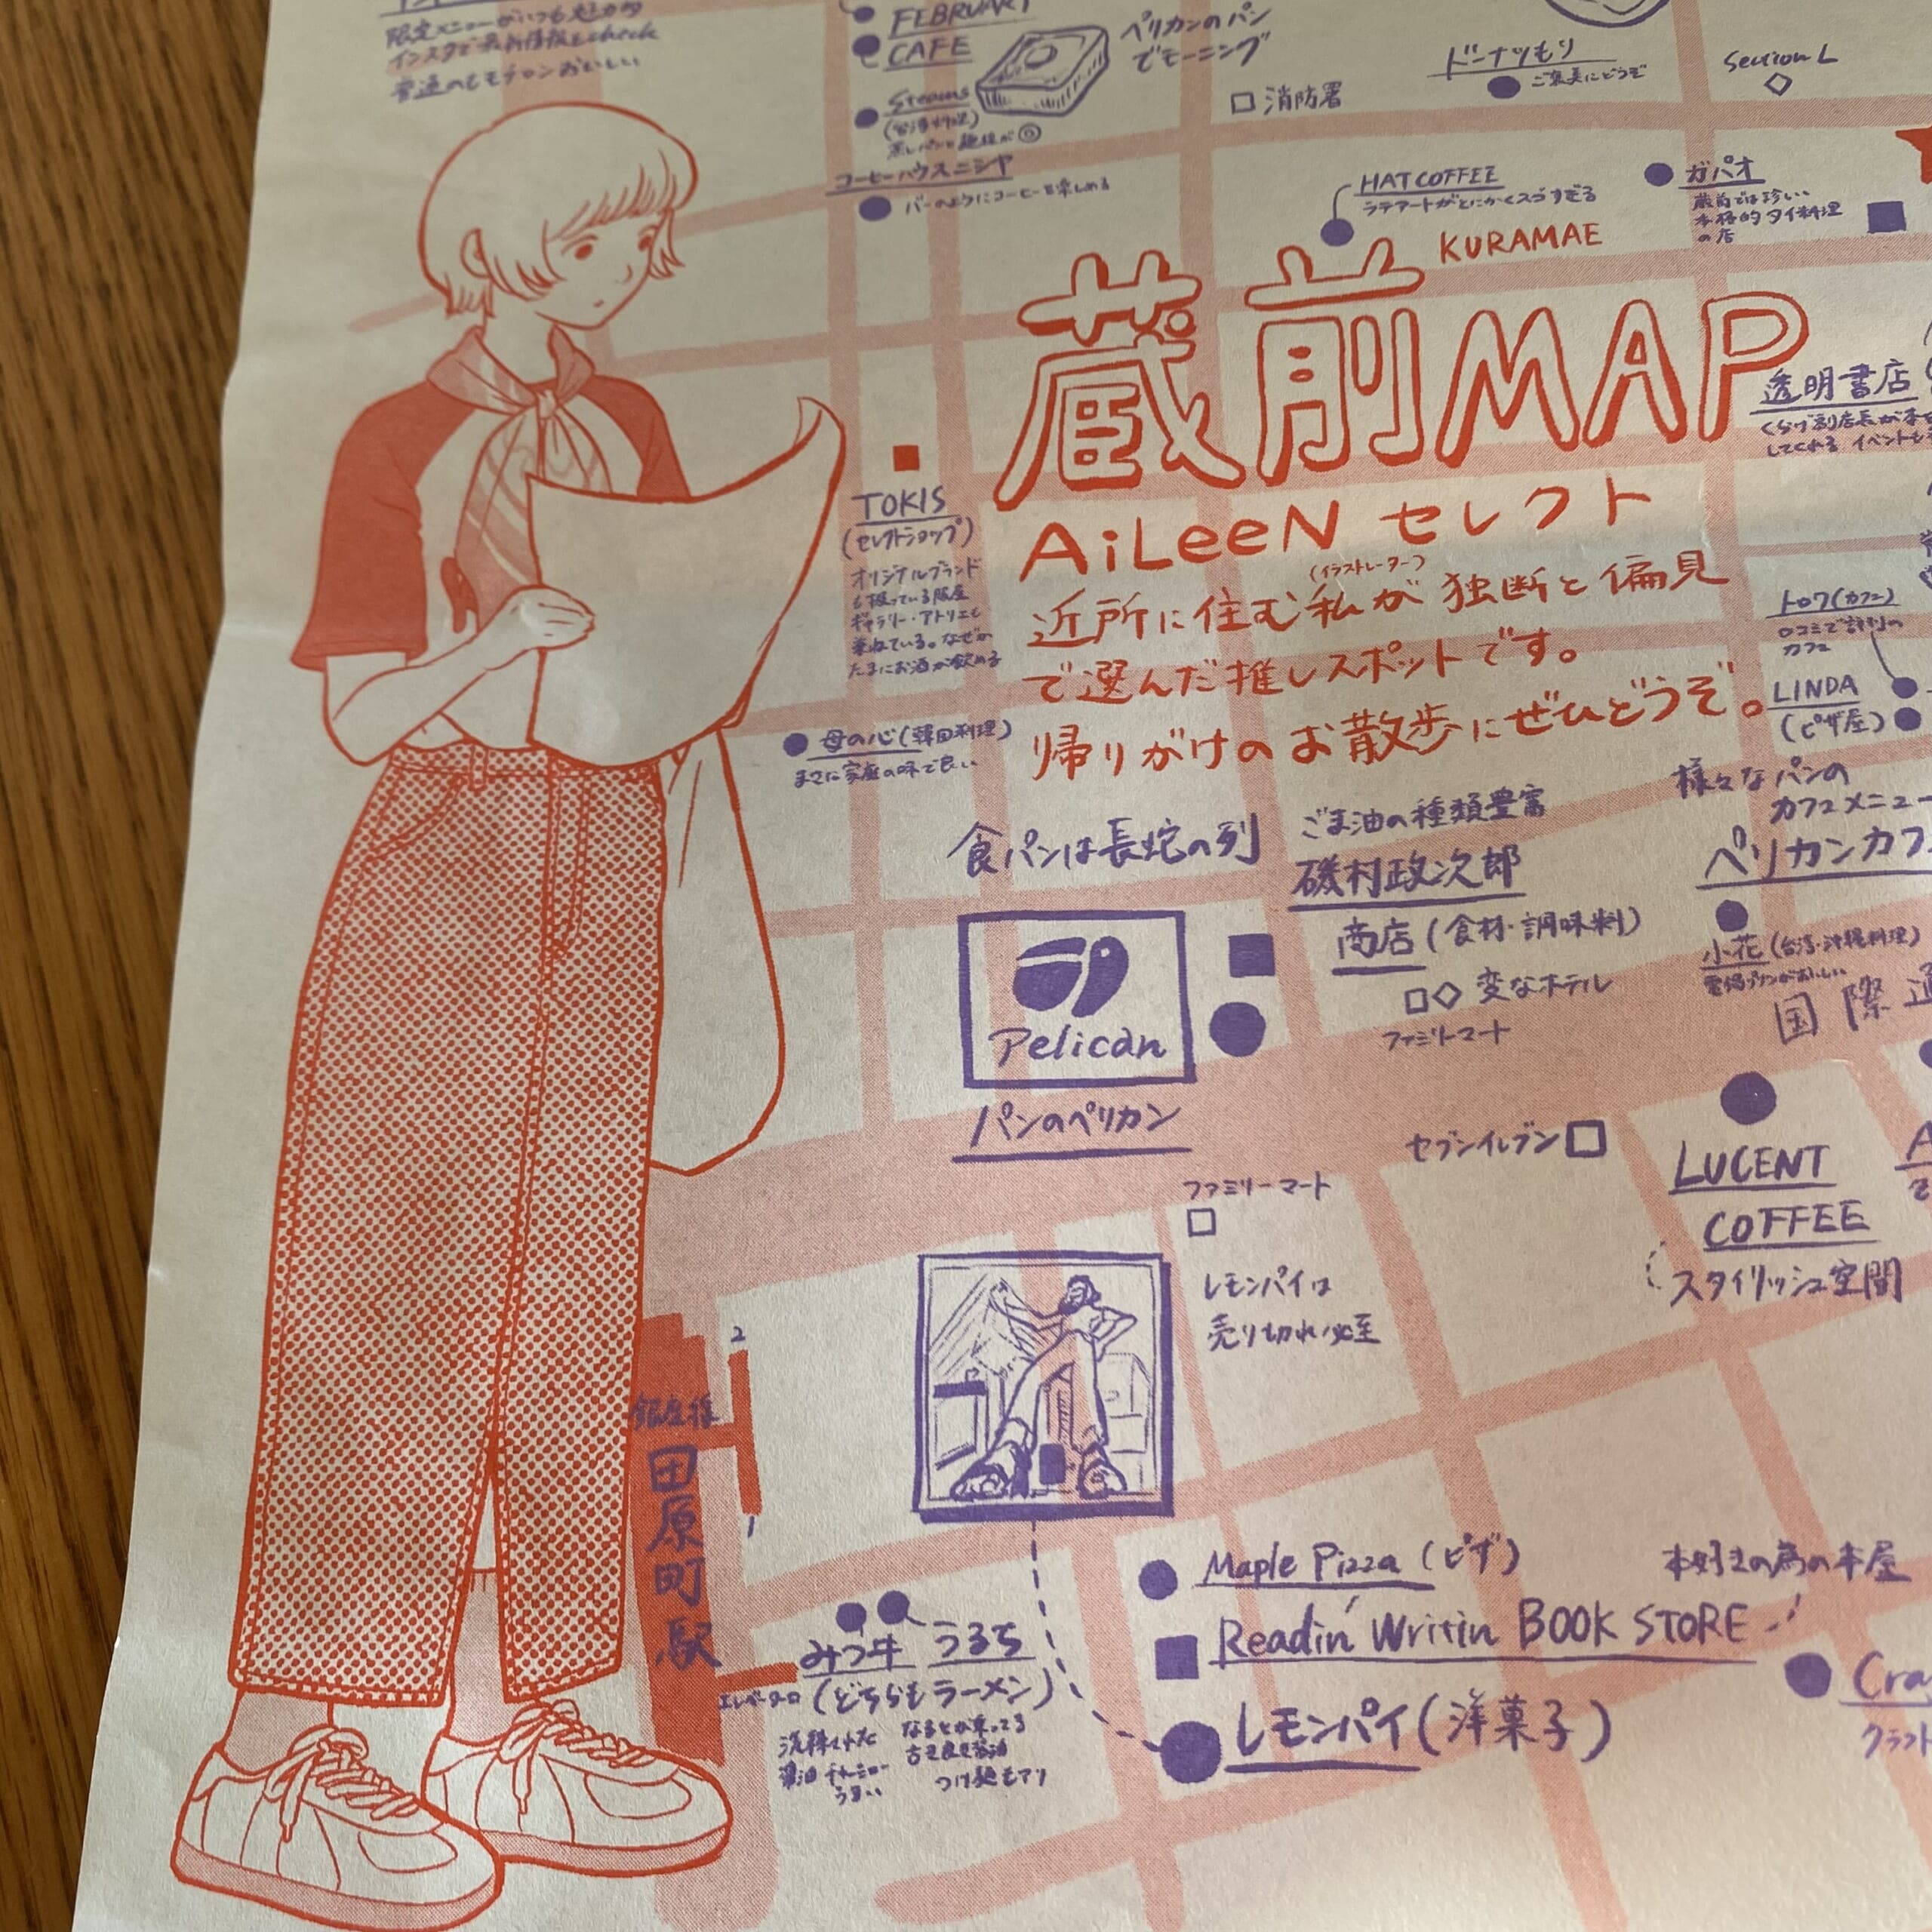 限定メニューがいつも魅力的
インスタで最新情報をcheck
普通のレモネロンおいしい
FEBRUARY
CAFE
ペリカンのパン
でモーニング
Steams
(台湾料理)
消防署
ドーナツもり
ご褒美にどうぞ
Section L
コーヒーハウスニシヤ
バーのようにコーヒーを楽しめる
HAT COFFEE
ラテアートがとにかくスゴすぎる
ガパオ
蔵前では珍しい
本格的タイ料理
の店
KURAMAE
蔵前MAP
透明書店
くらげ副店長が
してくれる イベントも
AiLeeN セレクト
(イラストレーター)
近所に住む私が独断と偏見
で選んだ推しスポットです。
帰りがけのお散歩にぜひどうぞ。
TOKIS
(セレクトショップ)
オリジナルブランド
も扱っている服屋
ギャラリー・アトリエも
兼ねている。なぜか
たまにお酒が飲める
トロワ(カフェ)
口コミで評判の
カフェ
LINDA
(ピザ屋)
母の心(韓国料理)
まさに家庭の味で良い
様々なパンの
カフェメニュー
ペリカンカフ
食パンは長蛇の列
ごま油の種類豊富
磯村政次郎
商店(食材・調味料)
変なホテル
ファミリーマート
小花(台湾・沖縄料理)
国際通
Pelican
パンのペリカン
セブンイレブン
ファミリーマート
LUCENT
COFFEE
スタイリッシュ空間
レモンパイは
売り切れ必至
2
1
銀座線
田原町駅
エレベーター口
Maple Pizza (ピザ)
本好きの為の本屋
Readin' Writin BOOK STORE
レモンパイ(洋菓子)
みつ牛 うるち
(どちらもラーメン)
洗練された
醤油チャーシュー
うまい
なるとが乗ってる
古き良き醤油
つけ麺もアリ
Cra
クラフト